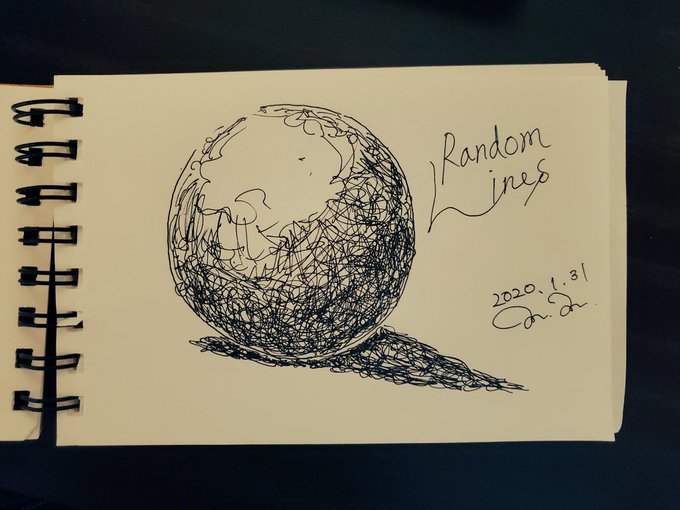 Random
Lines
2020.1.31